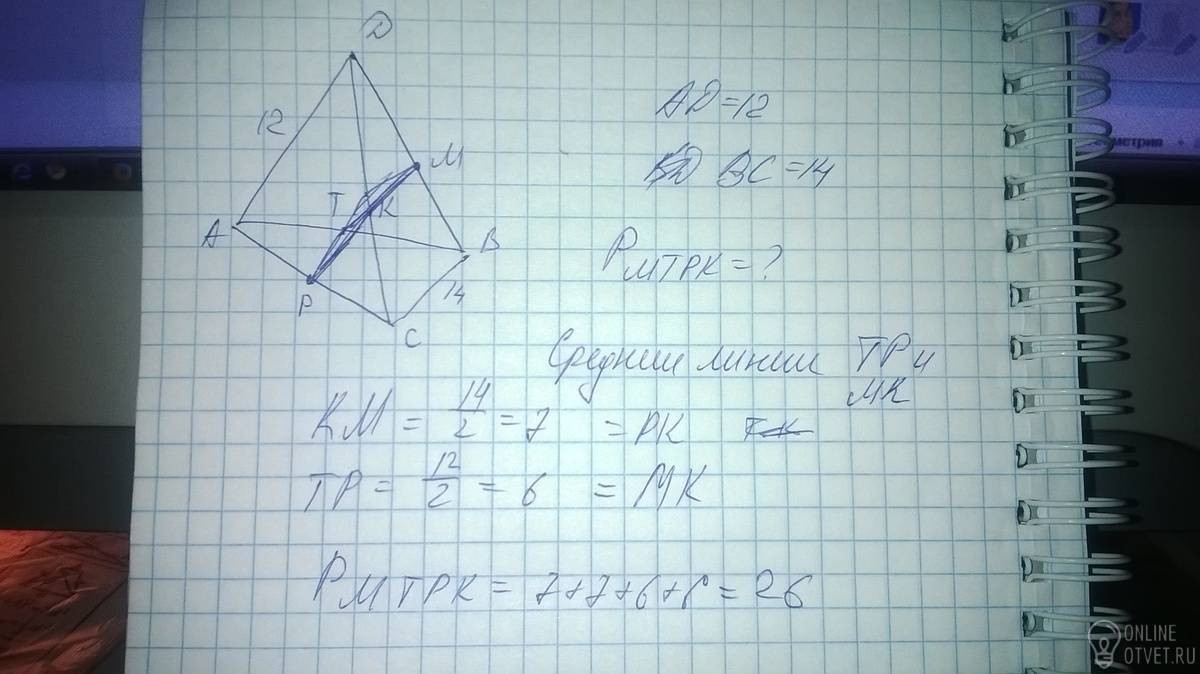 D
12
M
T K
A
B
P
14
C
AD=12
BC=14
P MTPK = ?
Средние линии TP и
MK
KM = 14/2 = 7 = PK
TP = 12/2 = 6 = MK
P MTPK = 7+7+6+6=26
ONLINE
OTVET.RU